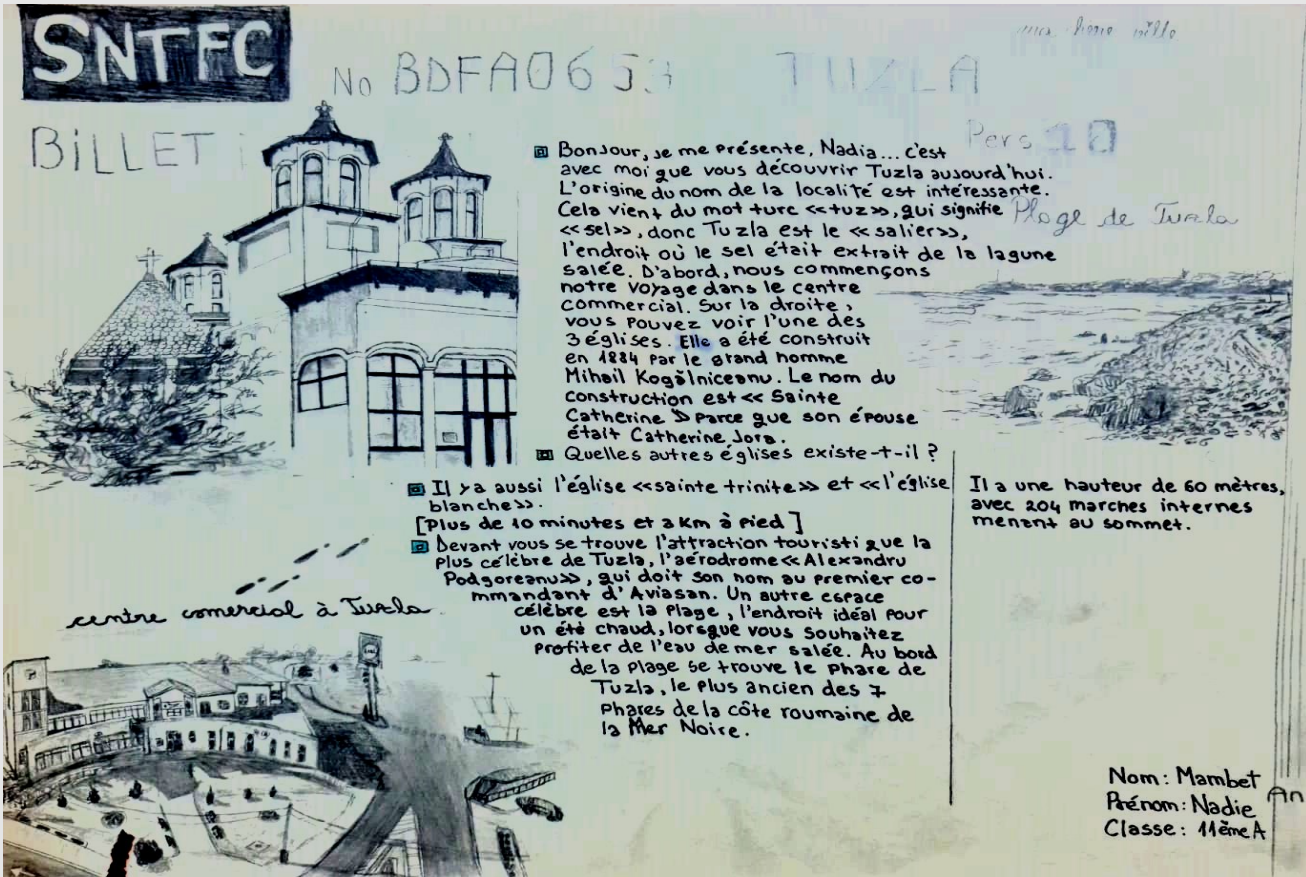 SNTFC
ma chère ville
No BDFA065
TUZLA
BILLET
Pers 10
Bonjour, je me présente, Nadia... c'est
avec moi que vous découvrir Tuzla aujourd'hui.
L'origine du nom de la localité est intéressante.
Cela vient du mot turc <<tuz>>, qui signifie
<<sel>>, donc Tuzla est le <<salier>>,
l'endroit où le sel était extrait de la lagune
salée. D'abord, nous commençons
notre voyage dans le centre
commercial. Sur la droite,
vous pouvez voir l'une des
3 églises. Elle a été construit
en 1884 par le grand homme
Mihail Kogălniceanu. Le nom du
construction est << Sainte
Catherine >> parce que son épouse
était Catherine Jora.
Quelles autres églises existe-t-il ?
Il y a aussi l'église <<sainte trinite>> et <<l'église
blanche>>.
[Plus de 10 minutes et 2 Km à pied]
Devant vous se trouve l'attraction touristique la
plus célèbre de Tuzla, l'aérodrome <<Alexandru
Podgoreanu>>, qui doit son nom au premier co-
mmandant d'Aviasan. Un autre espace
célèbre est la plage, l'endroit idéal pour
un été chaud, lorsque vous souhaitez
profiter de l'eau de mer salée. Au bord
de la plage se trouve le phare de
Tuzla, le plus ancien des 7
phares de la côte roumaine de
la Mer Noire.
Plage de Tuzla
Il a une hauteur de 60 mètres,
avec 204 marches internes
menant au sommet.
centre comercial à Tuzla
Nom: Mambet
Prénom: Nadie
Classe: 11ème A
An